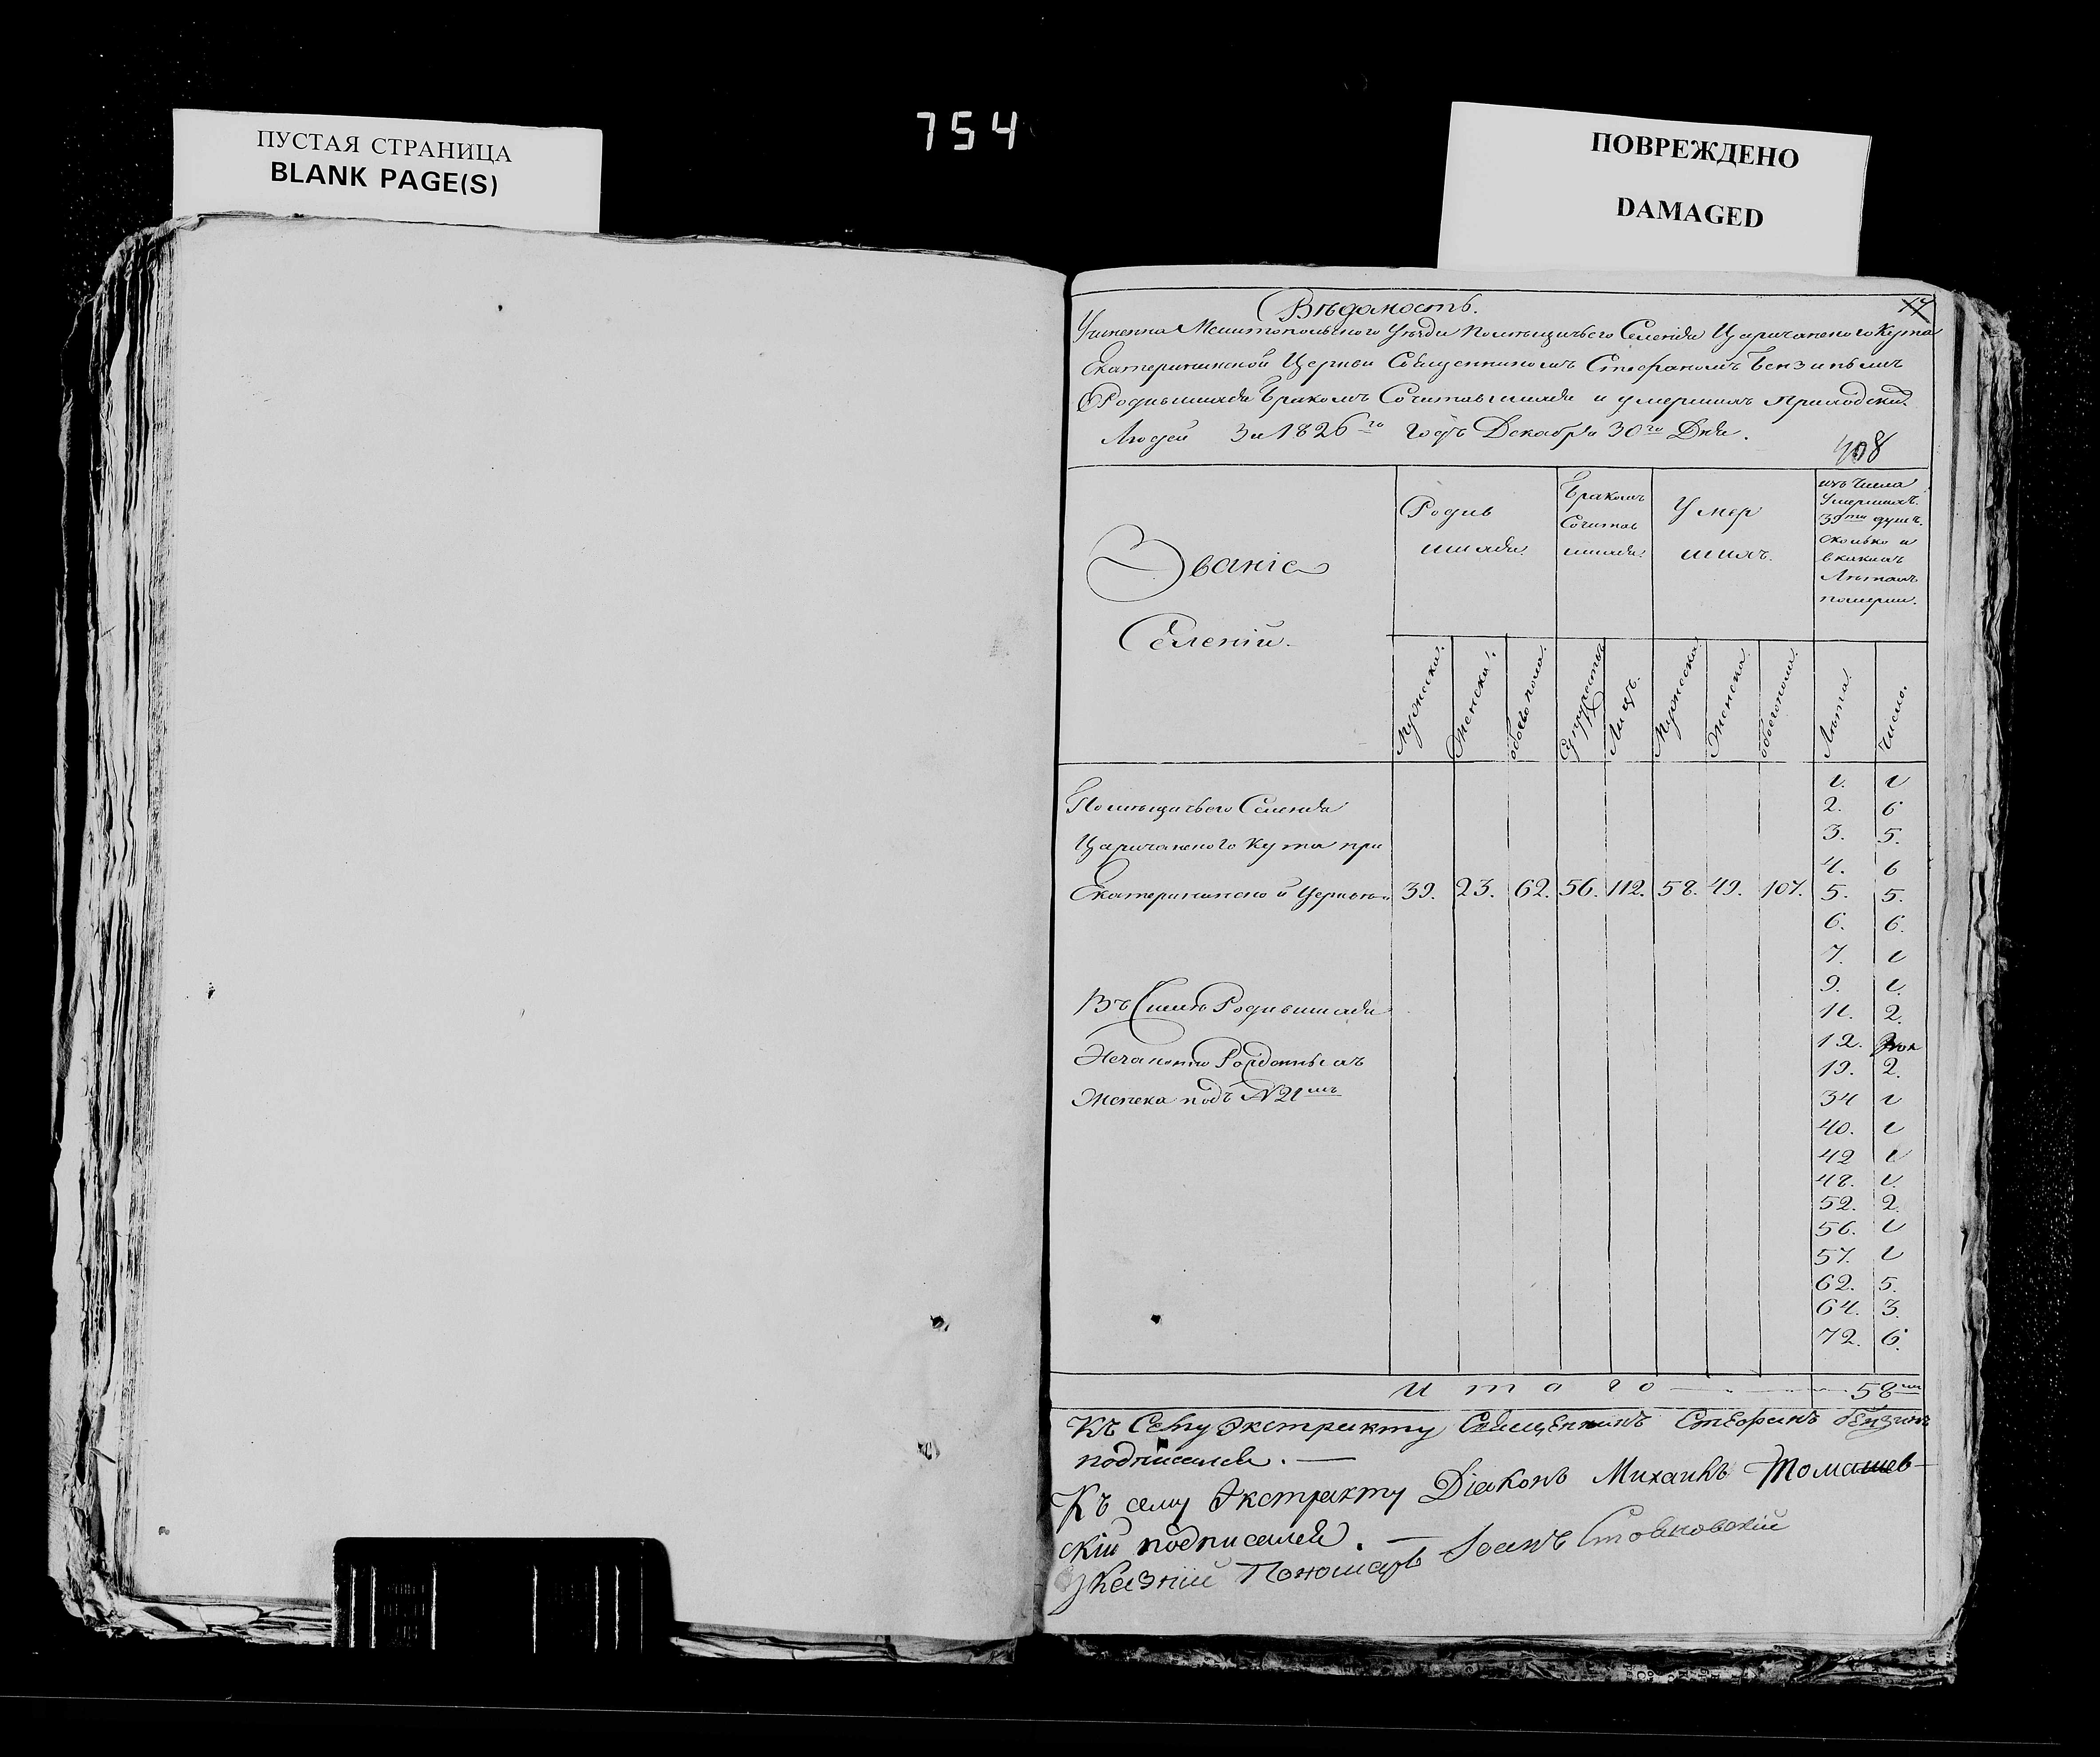 ПУСТАЯ СТРАНИЦА
BLANK PAGE(S)
754
ПОВРЕЖДЕНО
DAMAGED
Вѣдомость.
Учиненна Мелитопольского Уѣзда Помѣщичьего Селенія Царичанского Кута
Екатерининской Церкви Священникомъ Стефаномъ
О Родившихся Бракомъ Сочитавшихся и умершихъ Приходскихъ
Людей За 1826го Годъ Декабря 30го Дня.
408
Званіе
Селеній.
Родив
шихся.
Бракомъ
Сочитав
шихся.
Умер
шихъ.
изъ Числа
Умершихъ
душъ.
сколько и
в какихъ
Лѣтахъ
померли.
Мужеска.
Женска.
обоего пола.
Супружествъ
Лицъ.
Мужеска.
Женска.
обоего пола.
Лѣта.
Число.
Помѣщичьего Селенія
Царичанского Кута при
Екатерининской Церкви
39. 23. 62. 56. 112. 58. 49. 107.
1. 1
2. 6
3. 5.
4. 6
5. 5.
6. 6.
7. 1
9. 1.
11. 2.
12.
19. 2.
34 1
40. 1
42 1
48. 1.
52. 2.
56. 1
57. 1
62. 5.
64. 3.
72. 6.
Въ Числѣ Родившихся
Незаконно Рожденныхъ
Женска подъ N 21мъ
Итого 58
Къ Сему Экстракту Священникъ Стефанъ
подписался.
Къ сему Экстракту Діаконъ Михаилъ Томашев-
скій подписался.
Указній Пономарь Іоанъ